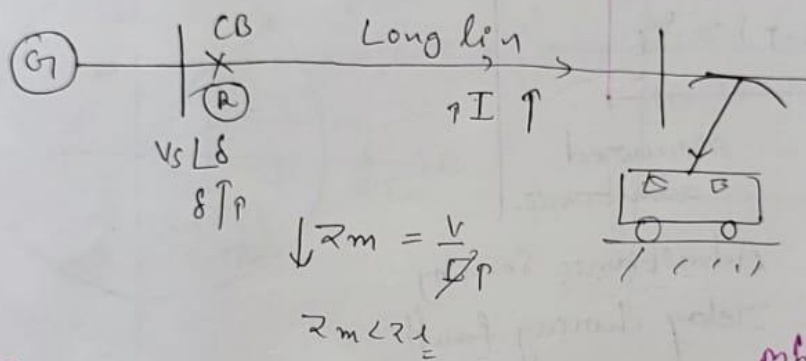 CB
G
Long lin
R
↑ I ↑
Vs∠δ
δ↑↑
↓Zm = V/I↑
Zm<Zl